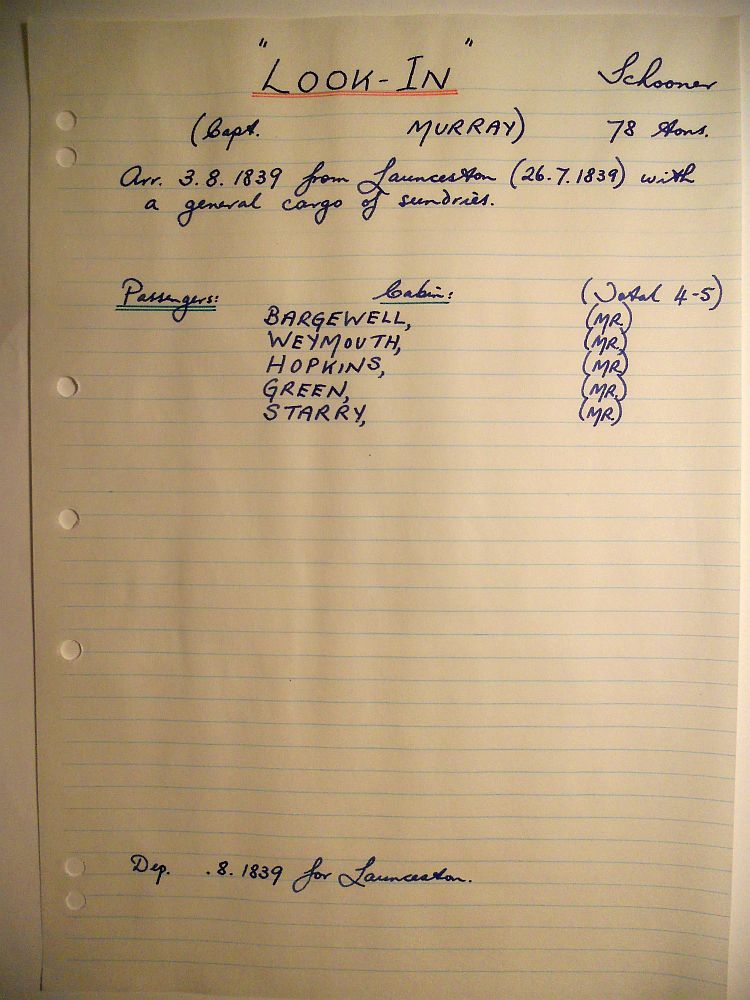 "LOOK-IN" Schooner
(Capt. MURRAY) 78 tons.
Arr. 3.8.1839 from Launceston (26.7.1839) with
a general cargo of sundries.
Passengers: Cabin: (Total 4-5)
BARGEWELL, (MR.)
WEYMOUTH, (MR.)
HOPKINS, (MR)
GREEN, (MR.)
STARRY, (MR.)
Dep. .8.1839 for Launceston.